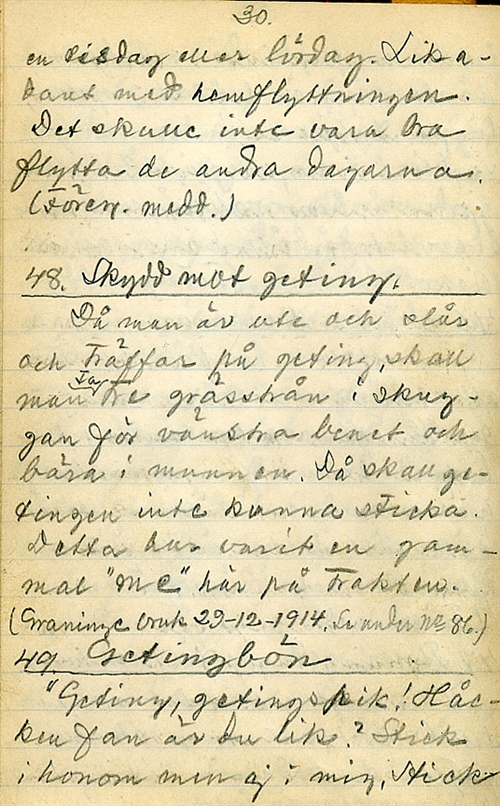 30.
en tisdag eller lördag. Lika-
dant med hemflyttningen.
Det skulle inte vara bra
flytta de andra dagarna.
(Föreg. medd.)
48. Skydd mot geting.
Då man är ute och slår
och träffar på geting, skall
man ta tre grässtrån i skug-
gan för vänstra benet och
bära i munnen. Då skall ge-
tingen inte kunna sticka.
Detta har varit en gam-
mal "me" här på trakten.
(Graninge bruk 29-12-1914. Se under No 86.)
49. Getingbön
"Geting, getingspik! Håc-
ken fan är du lik? Stick
i honom men ej i mig, stick